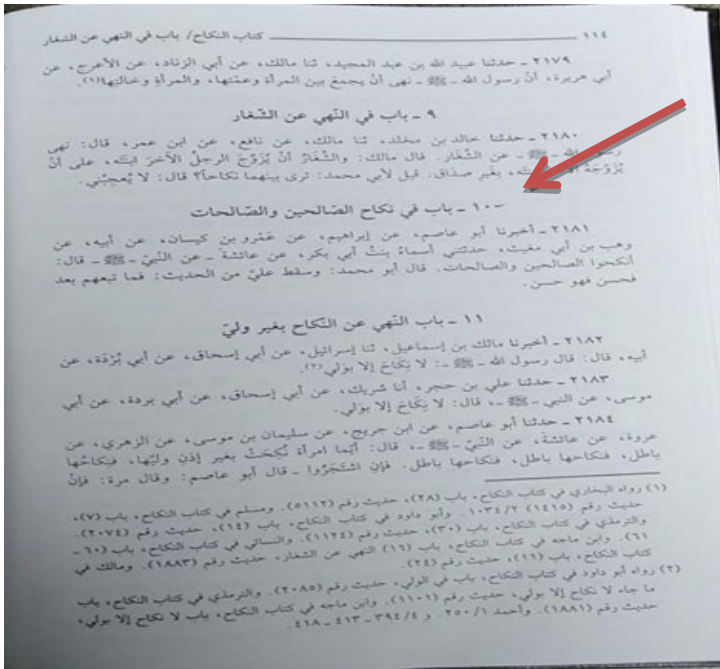 ١١٤ ــــــ كتاب النكاح/ باب في النهي عن الشغار
٢١٧٩ ـ حدثنا عبيد الله بن عبد المجيد، ثنا مالك، عن أبي الزناد، عن الأعرج، عن
أبي هريرة، أنّ رسول الله ـ ﷺ ـ نهى أنْ يجمعَ بين المرأة وعمّتها، والمرأةِ وخالتِها(١).
٩ ـ باب في النّهي عن الشّغار
٢١٨٠ ـ حدثنا خالد بن مخلد، ثنا مالك، عن نافع، عن ابن عمر، قال: نهى
رسول الله ـ ﷺ ـ عن الشّغار. قال مالك: والشّغارُ أنْ يُزوِّجَ الرجلُ الآخرَ ابنتَه، على أنْ
يُزوِّجَهُ بغيرِ صدَاق. قيل لأبي محمد: ترى بينهما نكاحاً؟ قال: لا يُعجبُني.
١٠ ـ باب في نكاح الصّالحين والصّالحات
٢١٨١ ـ أخبرنا أبو عاصم، عن إبراهيم، عن عَمْرو بن كيسان، عن أبيه، عن
وهب بن أبي مغيث، حدثتني أسماءُ بنتُ أبي بكر، عن عائشة ـ عن النّبيّ ـ ﷺ ـ قال:
أنكحوا الصالحين والصالحات. قال أبو محمد: وسقط عليّ من الحديث: فما تبعهم بعد
فحسن فهو حسن.
١١ ـ باب النّهي عن النّكاح بغير وليّ
٢١٨٢ ـ أخبرنا مالك بن إسماعيل، ثنا إسرائيل، عن أبي إسحاق، عن أبي بُرْدَة، عن
أبيه، قال: قال رسول الله ـ ﷺ ـ: لا نِكاحَ إلا بوَلي(٢).
٢١٨٣ ـ حدثنا علي بن حجر، أنا شريك، عن أبي إسحاق، عن أبي بردة، عن أبي
موسى، عن النبي ـ ﷺ ـ، قال: لا نِكاحَ إلا بوَلي.
٢١٨٤ ـ حدثنا أبو عاصم، عن ابن جريج، عن سليمان بن موسى، عن الزهري، عن
عروة، عن عائشة، عن النّبيّ ـ ﷺ ـ، قال: أيّما امرأة نُكِحَتْ بغير إذنِ وليّها، فنِكاحُها
باطل، فنكاحها باطل، فنكاحها باطل. فإن اشتَجَرُوا ـ قال أبو عاصم: وقال مرة: فإنْ
(١) رواه البخاري في كتاب النكاح، باب (٢٨)، حديث رقم (٥١١٢). ومسلم في كتاب النكاح، باب (٧)،
حديث رقم (١٤١٥) ١٠٣٤/٢. وأبو داود في كتاب النكاح، باب (١٤)، حديث رقم (٢٠٧٤).
والترمذي في كتاب النكاح، باب (٣٠)، حديث رقم (١١٢٤). والنسائي في كتاب النكاح، باب (٦٠ ـ
٦١). وابن ماجه في كتاب النكاح، باب (١٦) النهي عن الشغار، حديث رقم (١٨٨٣). ومالك في
كتاب النكاح، باب (١٦)، حديث رقم (٢٤).
(٢) رواه أبو داود في كتاب النكاح، باب في الولي، حديث رقم (٢٠٨٥). والترمذي في كتاب النكاح، باب
ما جاء لا نكاح إلا بولي، حديث رقم (١١٠١). وابن ماجه في كتاب النكاح، باب لا نكاح إلا بولي،
حديث رقم (١٨٨١). وأحمد ٢٥٠/١. و ٣٩٤/٤ ـ ٤١٣ ـ ٤١٨.